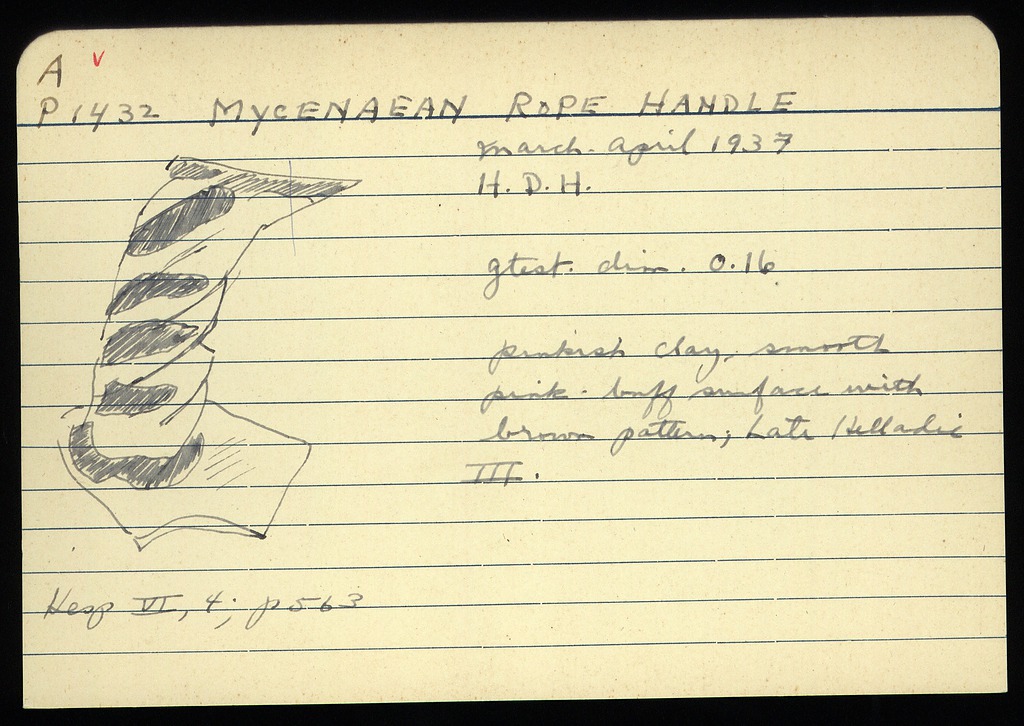 A v
P 1432 MYCENAEAN ROPE HANDLE
March-April 1937
H.D.H.
gtest. dim. 0.16
pinkish clay, smooth
pink-buff surface with
brown pattern; Late Helladic
III.
Hesp VI, 4; p 563